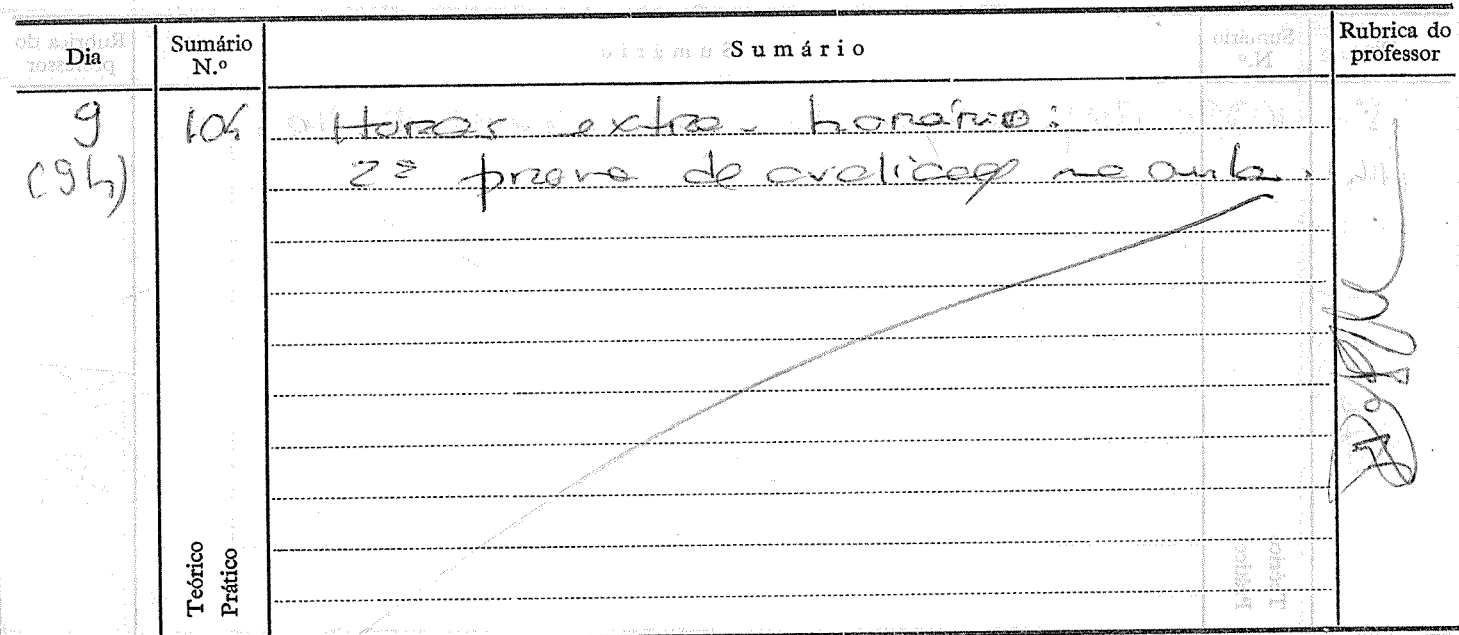 Dia Sumário N.º Sumário Rubrica do professor
9 104 Horas extra-horário:
(9h) 2ª prova de avaliação na aula.
Teórico
Prático